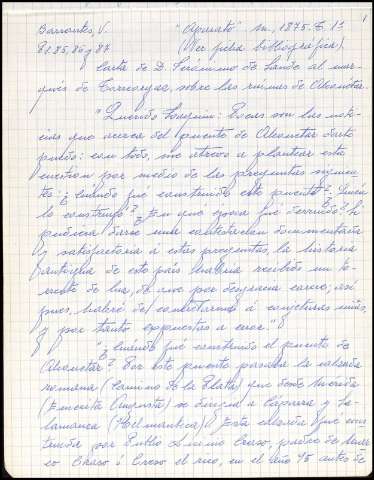 1
Barrantes, V. "Aparato" M., 1875. T. 1º
84, 85, 86 y 87 (Ver ficha bibliográfica)
Carta de D. Jerónimo de Sande al mar-
qués de Torreorgaz, sobre las ruinas de Alconétar.
"Querido Joaquin: Pocas son las noti-
cias que acerca del puente de Alconetar darte
puedo: con todo, me atrevo a plantear esta
cuestion por medio de las preguntas siguien-
tes: ¿Cuándo fué construido este puente? ¿Quién
lo construyó? ¿En que época fué derruido? Si
pudiera darse una contestacion documentada
y satisfactoria á estas preguntas, la historia
antigua de este país habria recibido un to-
rrente de luz, de que por desgracia carece; así
pues, habré de contentarme á conjeturas mias,
y por tanto expuestas a error."
"¿Cuándo fué construido el puente de
Alconetar? Por este puente pasaba la calzada
romana (Camino de la Plata) que desde Merida
(Emerita Augusta) se dirigia a Cáparra y Sa-
lamanca (Helmantica). Esta calzada fué cons-
truida por Publio Licinio Craso, padre de Marc-
co Craso ó Creso el rico, en el año 95 antes de